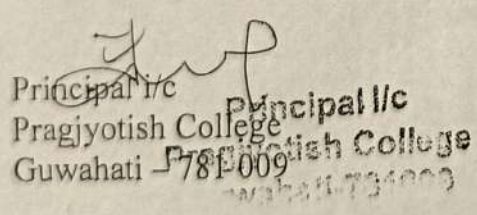 Principal i/c
Pragjyotish College
Guwahati – 781 009
Principal I/c
Pragjyotish College